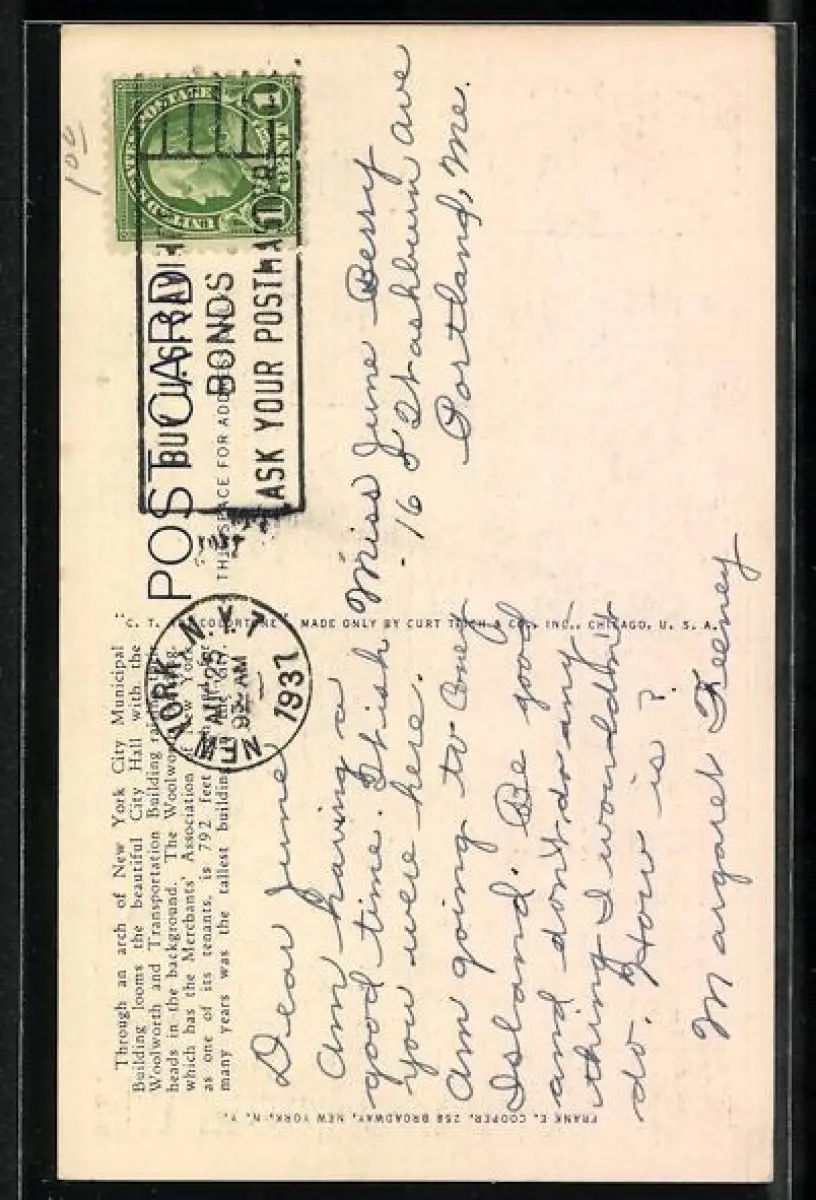 Through an arch of New York City Municipal
Building looms the beautiful City Hall with the
Woolworth and Transportation Building
heads in the background. The Woolworth
which has the Merchants' Association of New York
as one of its tenants, is 792 feet
many years was the tallest building in the city.
Dear June
Am having a
good time. Wish
you were here.
Am going to Coney
Island. Be good
and don't do any-
thing I wouldn't
do. How is ?
Margaret Feeney
FRANK E. COOPER, 258 BROADWAY, NEW YORK, N. Y.
"C. T. COLORTONE" MADE ONLY BY CURT TEICH & CO., INC., CHICAGO, U. S. A.
NEW YORK, N.Y.
9 AM
1937
POST CARD
THIS SPACE FOR ADDRESS
BUY U.S. SAVINGS
BONDS
ASK YOUR POSTMASTER
UNITED STATES POSTAGE
1
1
100
Miss June Berry
16 Washburn Ave
Portland, Me.